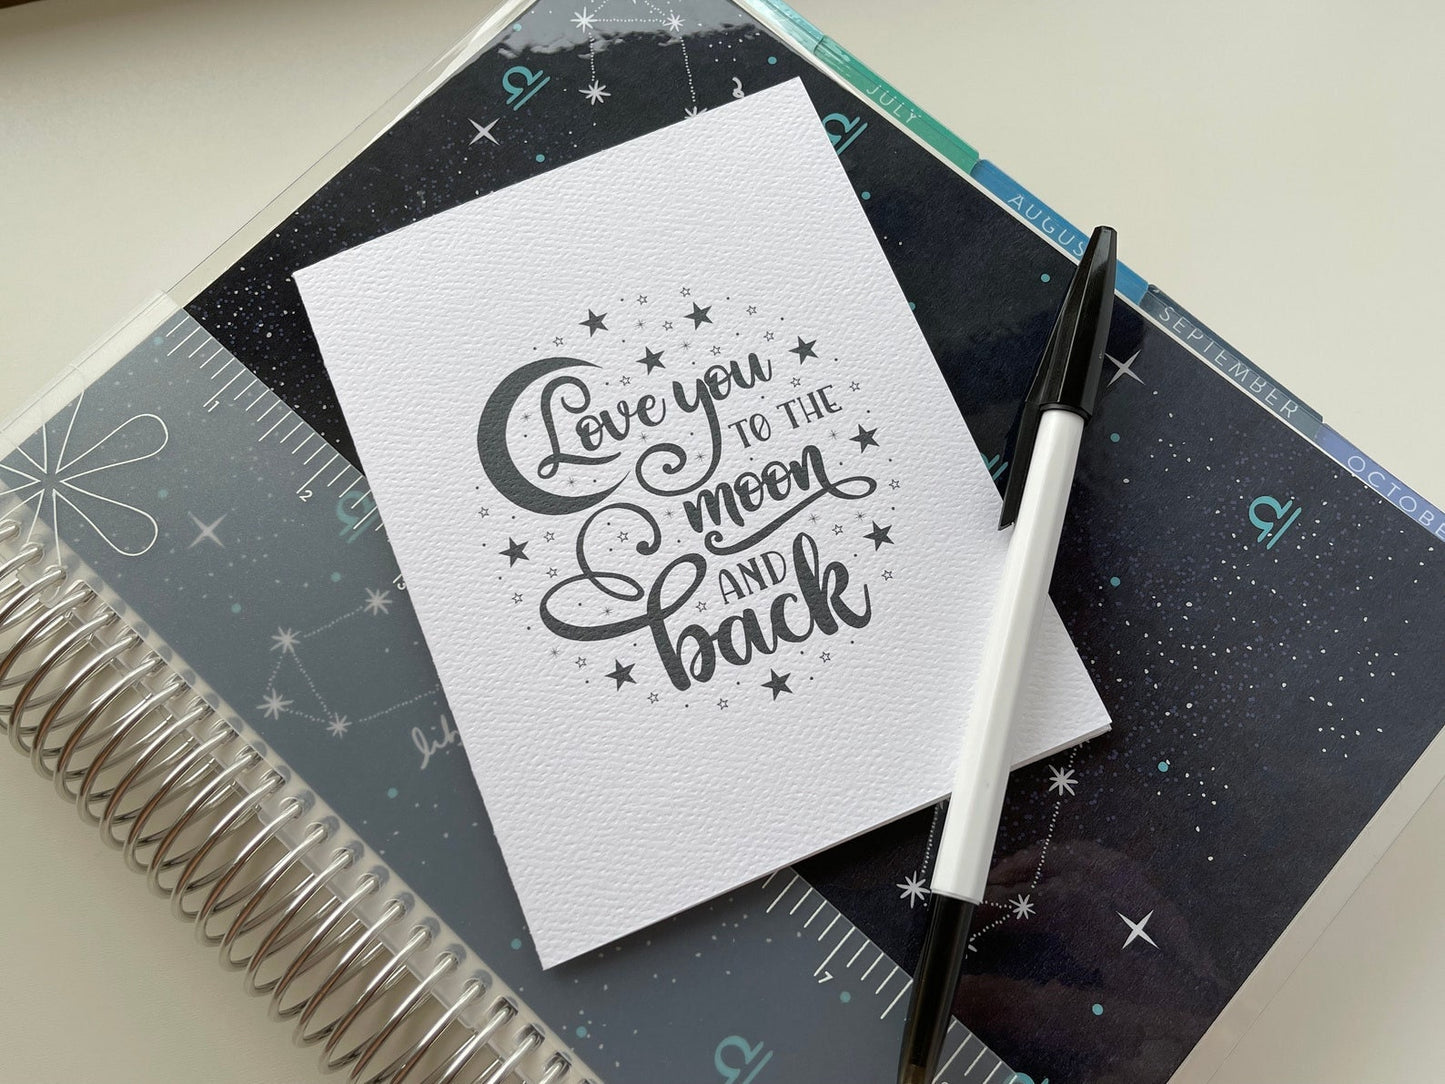 Love you
TO THE
moon
AND
back
JULY
AUGUS
SEPTEMBER
OCTOBE
1
2
13
7